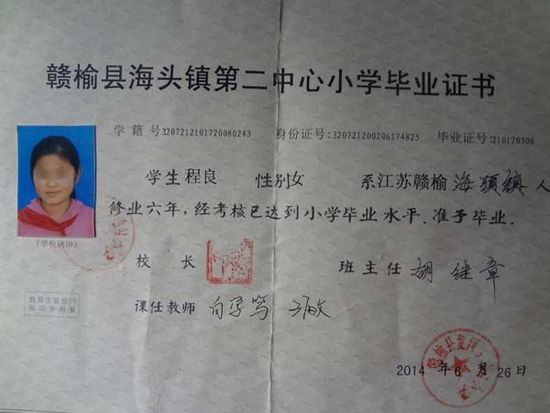 赣榆县海头镇第二中心小学毕业证书
学籍号320721210172008024​3 身份证号:320721200206174825 毕业证号:210170306
学生程良 性别女 系江苏赣榆海頭镇人
修业六年,经考核已达到小学毕业水平.准予毕业.
(学校钢印)
校长 班主任 胡继章
课任教师
2014年6月26日